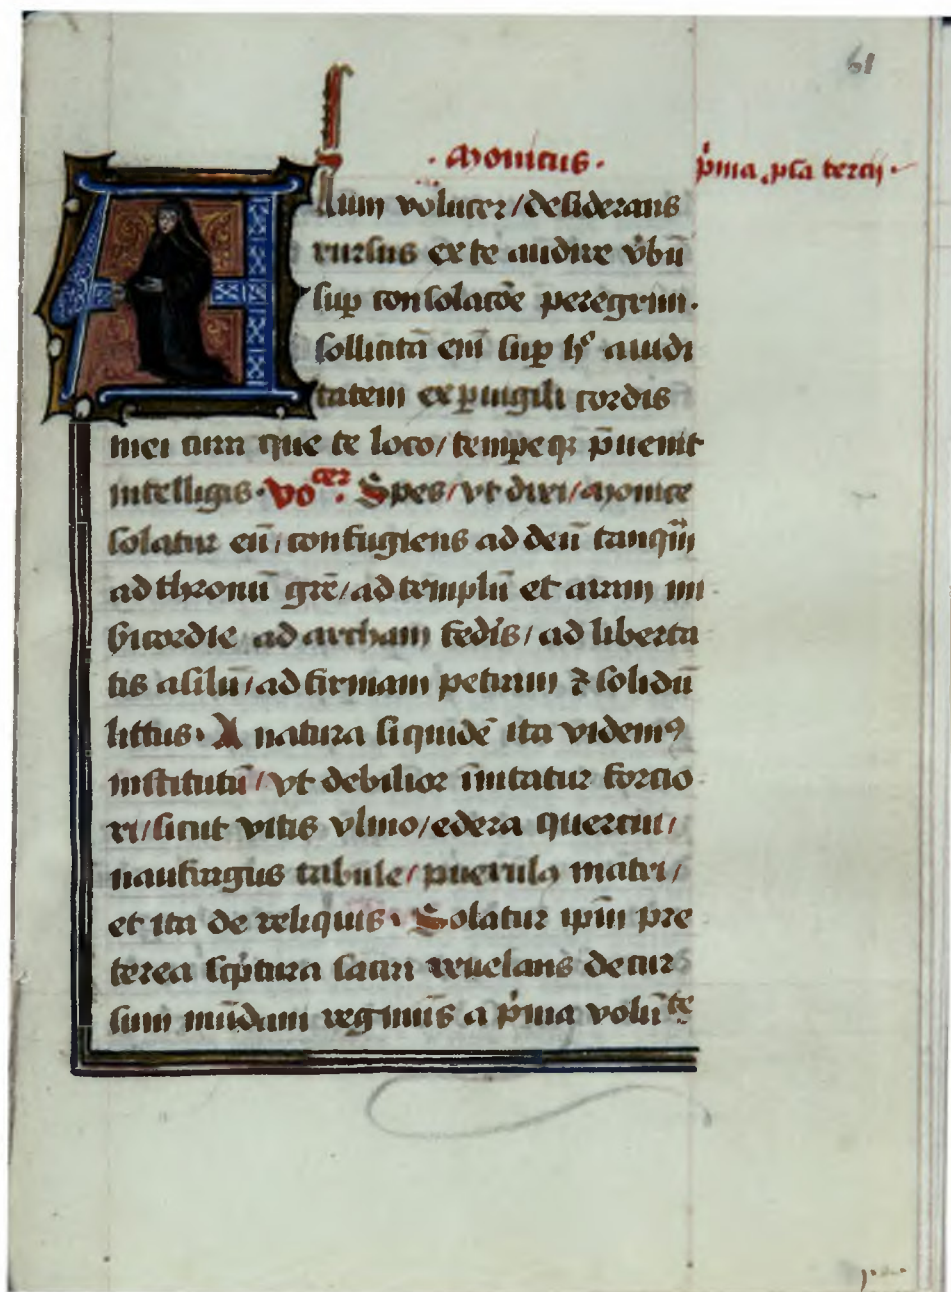 61
· Monicus ·
p̾ma ꝓsa tercij ·
Assum volucer / desiderans
rursus ex te audire v̾bū
suꝑ consolac̄oe peregrini.
sollicitā em̄ suꝑ hº auidi
tatem ex ꝑuigili cordis
mei cura que te loco / tempeqꝫ p̄uenit
intelligis. Vocer. Spes / vt dixi / monice
solatur eū / confugiens ad deū tanqm̄
ad thronū gr̄e / ad templū et aram mi
s̾icordie ad archam fed̾is / ad liberta
tis asilū / ad firmam petram ⁊ solidū
littus. A natura siquidē ita videmꝰ
institutū / vt debilior īnitatur forcio
ri / sicut vitis vlmo / edera quercui /
naufragus tabule / puerulꝰ matri /
et ita de reliquis. Solatur ip̄m pre
terea sc̾ptura sacra reuelans decur
sum mūdani regimīs a p̾ma volūte